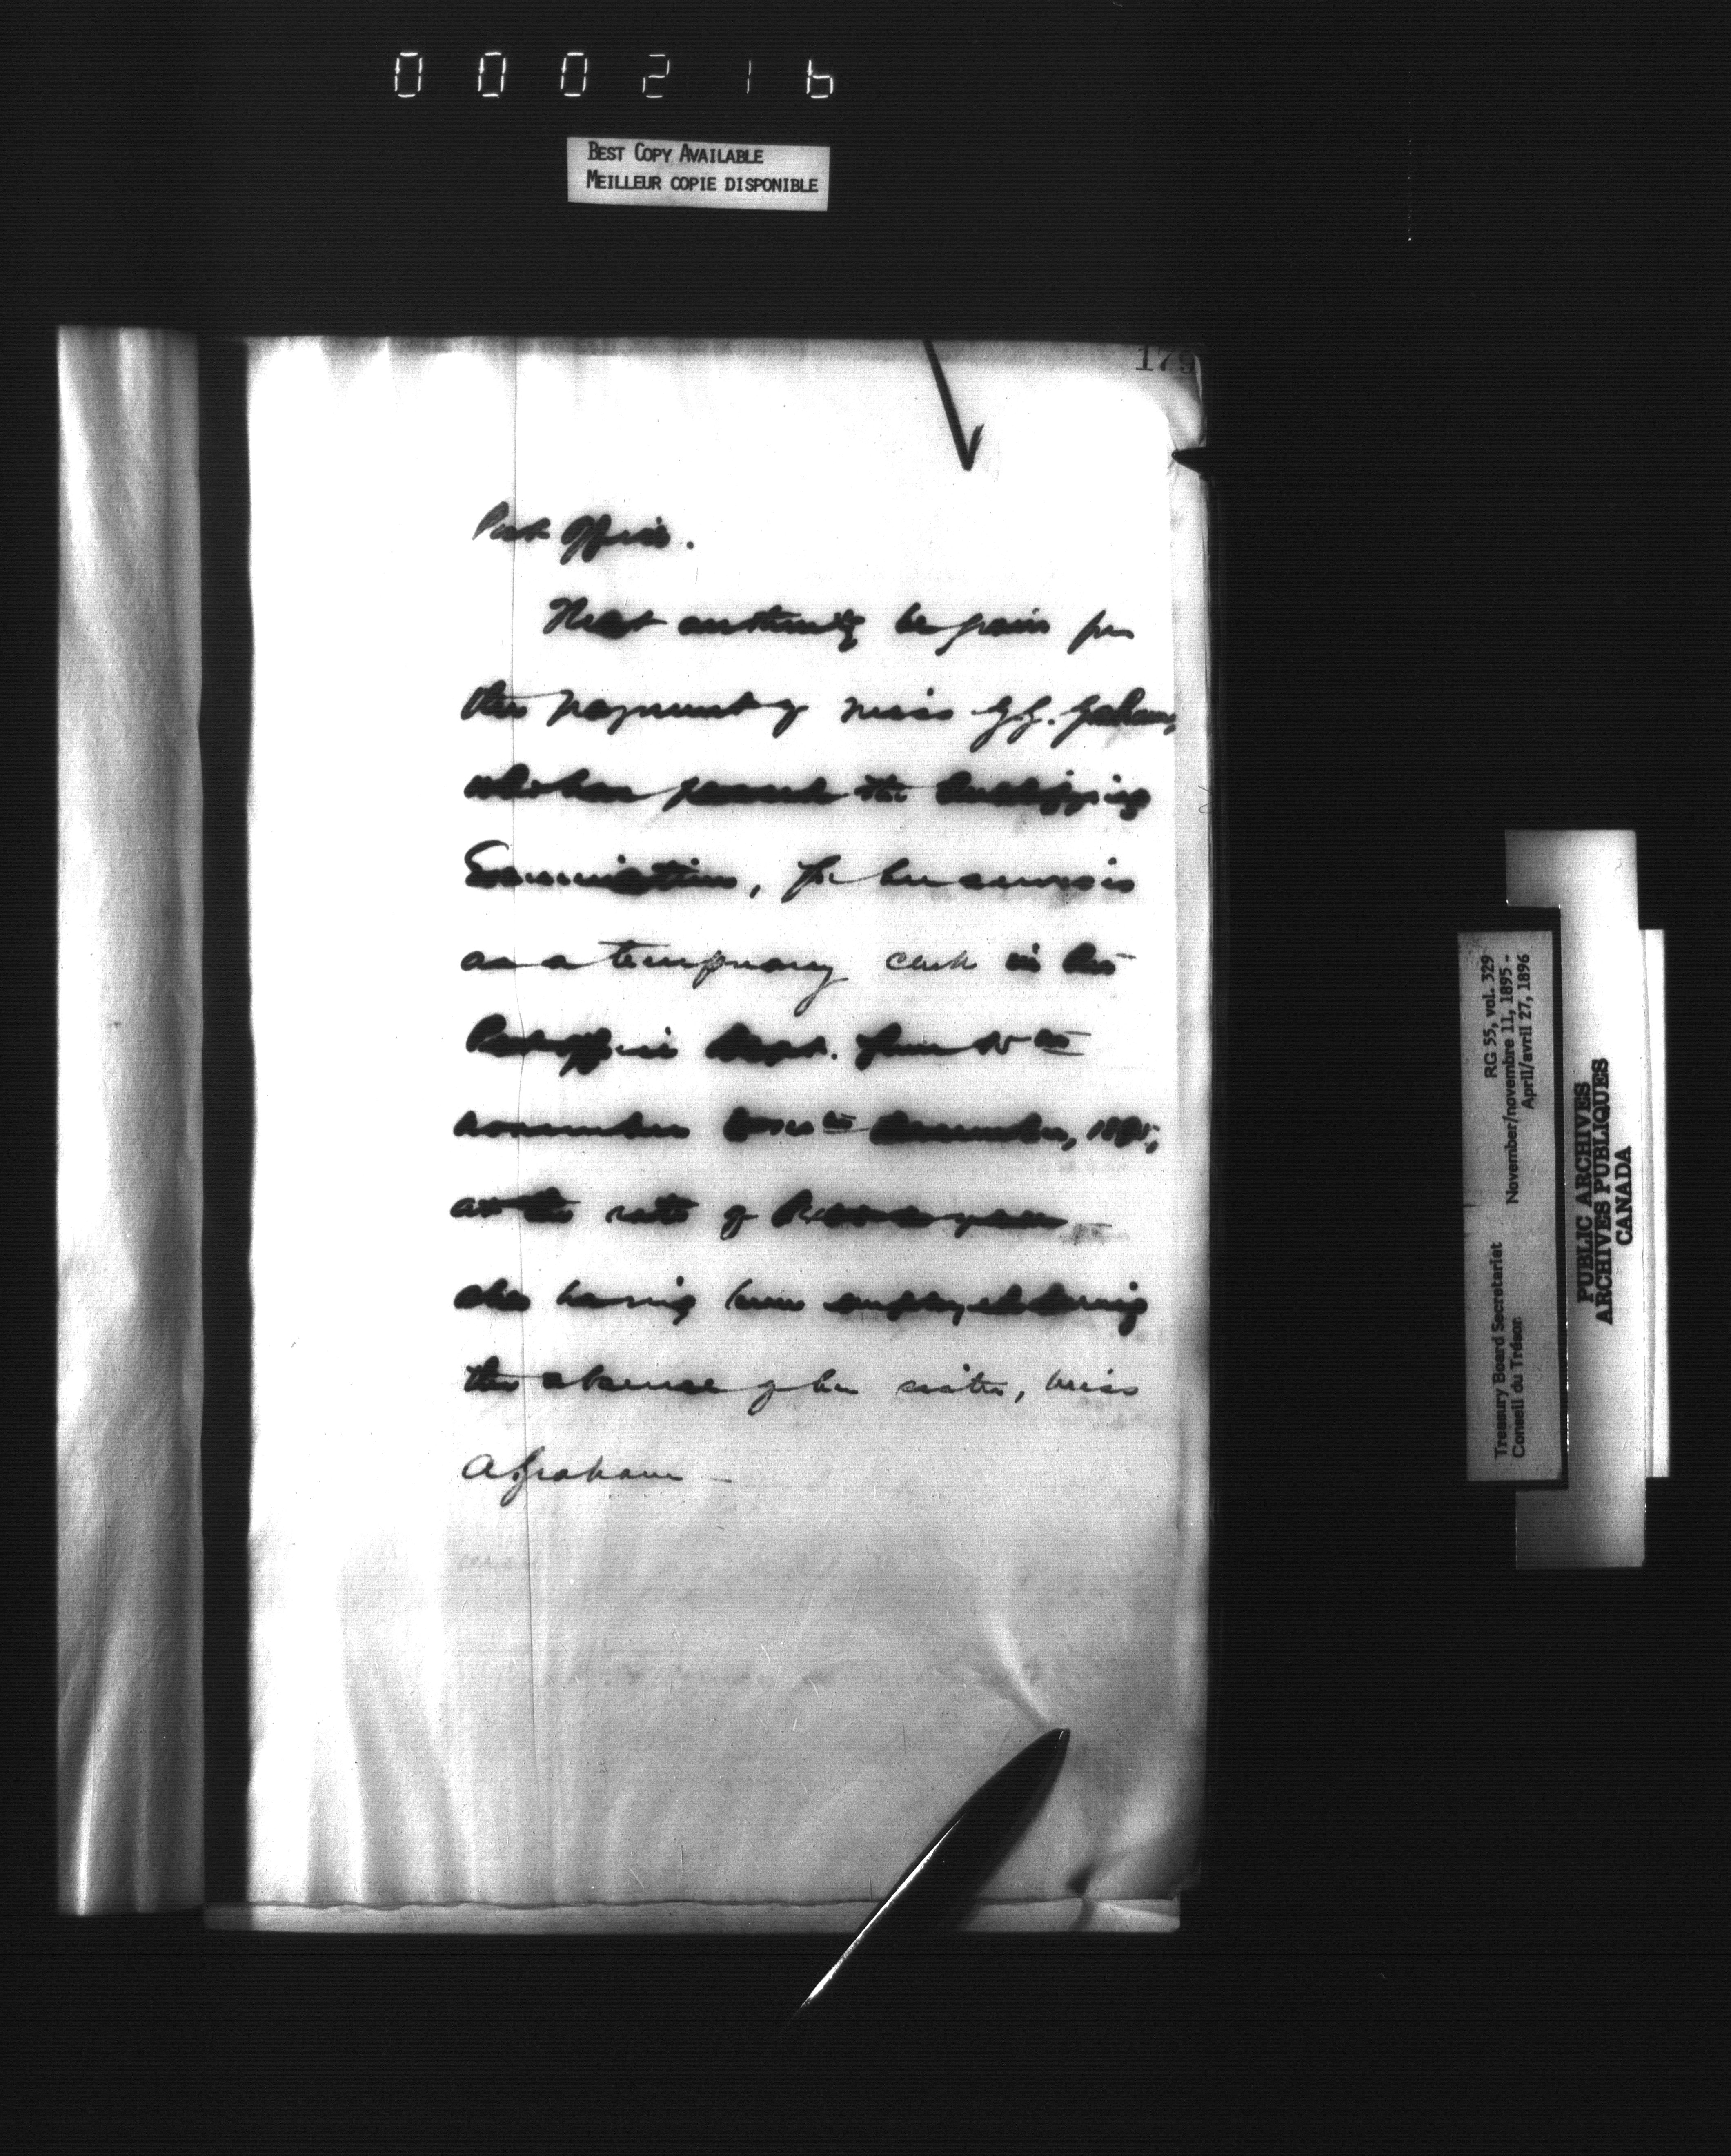 000216
BEST COPY AVAILABLE
MEILLEUR COPIE DISPONIBLE
179
Post Office.
That authority be given for
the payment of Miss G.G. Graham,
who has passed the Qualifying
Examination, for her services
as a temporary clerk in the
Post Office Dept. from
November December, 1895,
at the rate of
she having been employed during
the absence of her sister, Miss
A Graham —
Treasury Board Secretariat RG 55, vol. 329
Conseil du Trésor November/novembre 11, 1895 -
April/avril 27, 1896
PUBLIC ARCHIVES
ARCHIVES PUBLIQUES
CANADA